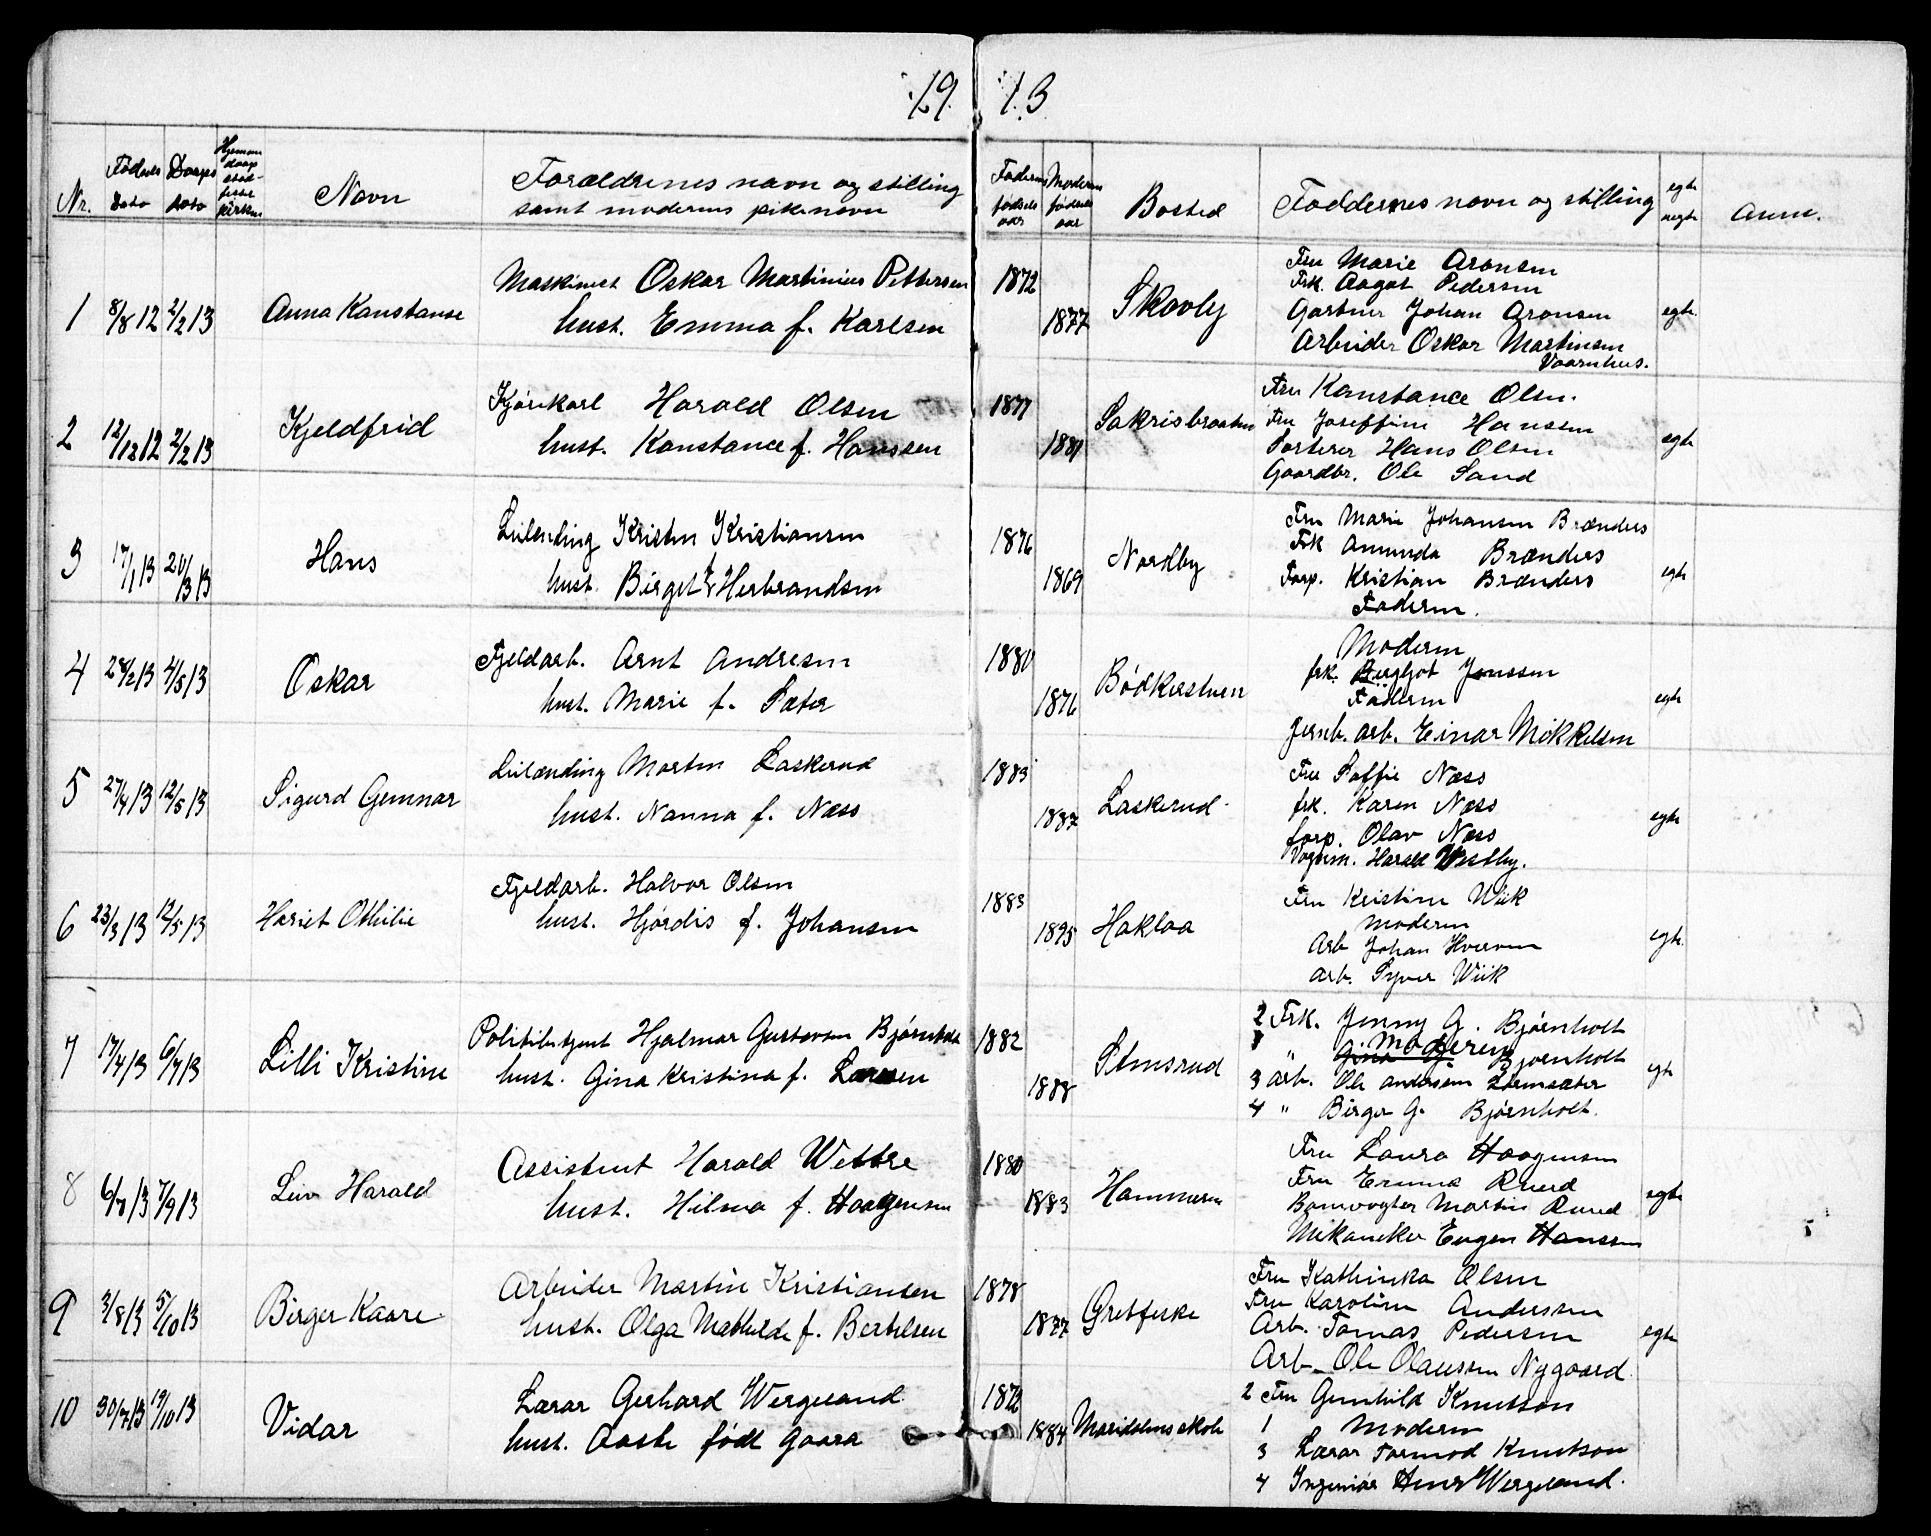 19 13
Nr. Fødsels dato Daaps dato Navn Forældrenes navn og stilling samt moderens pikenavn Faderens fødsels aar Moderens fødsels aar Bosted Faddernes navn og stilling egte uegte Anm.
1 8/8 12 2/2 13 Anna Konstanse Maskinist Oskar Martinius Pettersen 1872 Skovly Fru Marie Aronsen
Frk. Aagot Pedersen
hust. Emma f. Karlsen 1877 Gartner Johan Aronsen egte.
Arbeider Oskar Martinsen
Vaarnhus.
2 12/12 12 2/2 13 Kjeldfrid Kjørekarl Harald Olsen 1877 Sakrisbraaten Fru Konstance Olsen.
Fru Joseffine Hanssen
hust. Konstance f. Hanssen 1881 Porterer Hans Olsen egte
Gaardbr. Ole Sand
3 17/1 13 24/3 13 Hans Leilending Kristen Kristiansen 1876 Nordby Fru Marie Johansen Brænders
Frk Amunda Brænders
hust. Birget f. Herbrandsen 1869 Forp. Kristian Brænders egte
Faderen.
4 28/2 13 4/5 13 Oskar Fjeldarb. Arnt Andresen 1880 Bødkerstuen Moderen
frk. Bergljot Jonssen
hust. Marie f. Sæter 1876 Faderen egte
Jernb. arb. Einar Mikkelsen
5 27/4 13 12/5 13 Sigurd Gunnar Leilænding Morten Laskerud 1883 Laskerud Fru Soffie Næss
frk. Karen Næss
hust. Nanna f. Næss 1887 forp. Olav Næss egte
Vognm. Harald Westby.
6 23/3 13 12/5 13 Hariet Othilie Fjeldarb. Halvor Olsen 1883 Hakloa Fru Kristine Wiik
Moderen
hust. Hjørdis f. Johansen 1895 Arb Johan Hverven egte.
Arb. Syver Wiik
7 17/4 13 6/7 13 Lilli Kristine Politibetjent Hjalmar Gustavsen Bjørnholt 1882 Stensrud 2 Frk. Jenny G. Bjørnholt
1 " Gina G. Bjørnholt Moderen
hust. Gina Kristina f. Larsen 1888 3 Arb. Ole Andersen egte
4 " Birger G. Bjørnholt.
8 6/7 13 7/9 13 Leiv Harald Assistent Harald Wettre 1880 Hammeren Fru Laura Haagensen
Fru Emma Ruud
hust. Hilma f. Haagensen 1883 Bomvogter Martin Ruud egte
Mekaniker Eugen Hanssen
9 3/8 13 5/10 13 Birger Kaare Arbeider Martin Kristiansen 1878 Greffske Fru Kathinka Olsen
Fru Karoline Anderssen
hust. Olga Mathilde f. Bertelsen 1877 Arb. Tomas Pedersen egte
Arb. Ole Olaussen Nygaard
10 30/7 13 19/10 13 Vidar Lærar Gerhard Wergeland 1872 Maridalens skole 2 Fru Gunhild Knutson
1 Moderen
hust. Aaste født Gaara 1884 3 Lærar Tormod Knutson
4 Ingeniør Henr Wergeland.